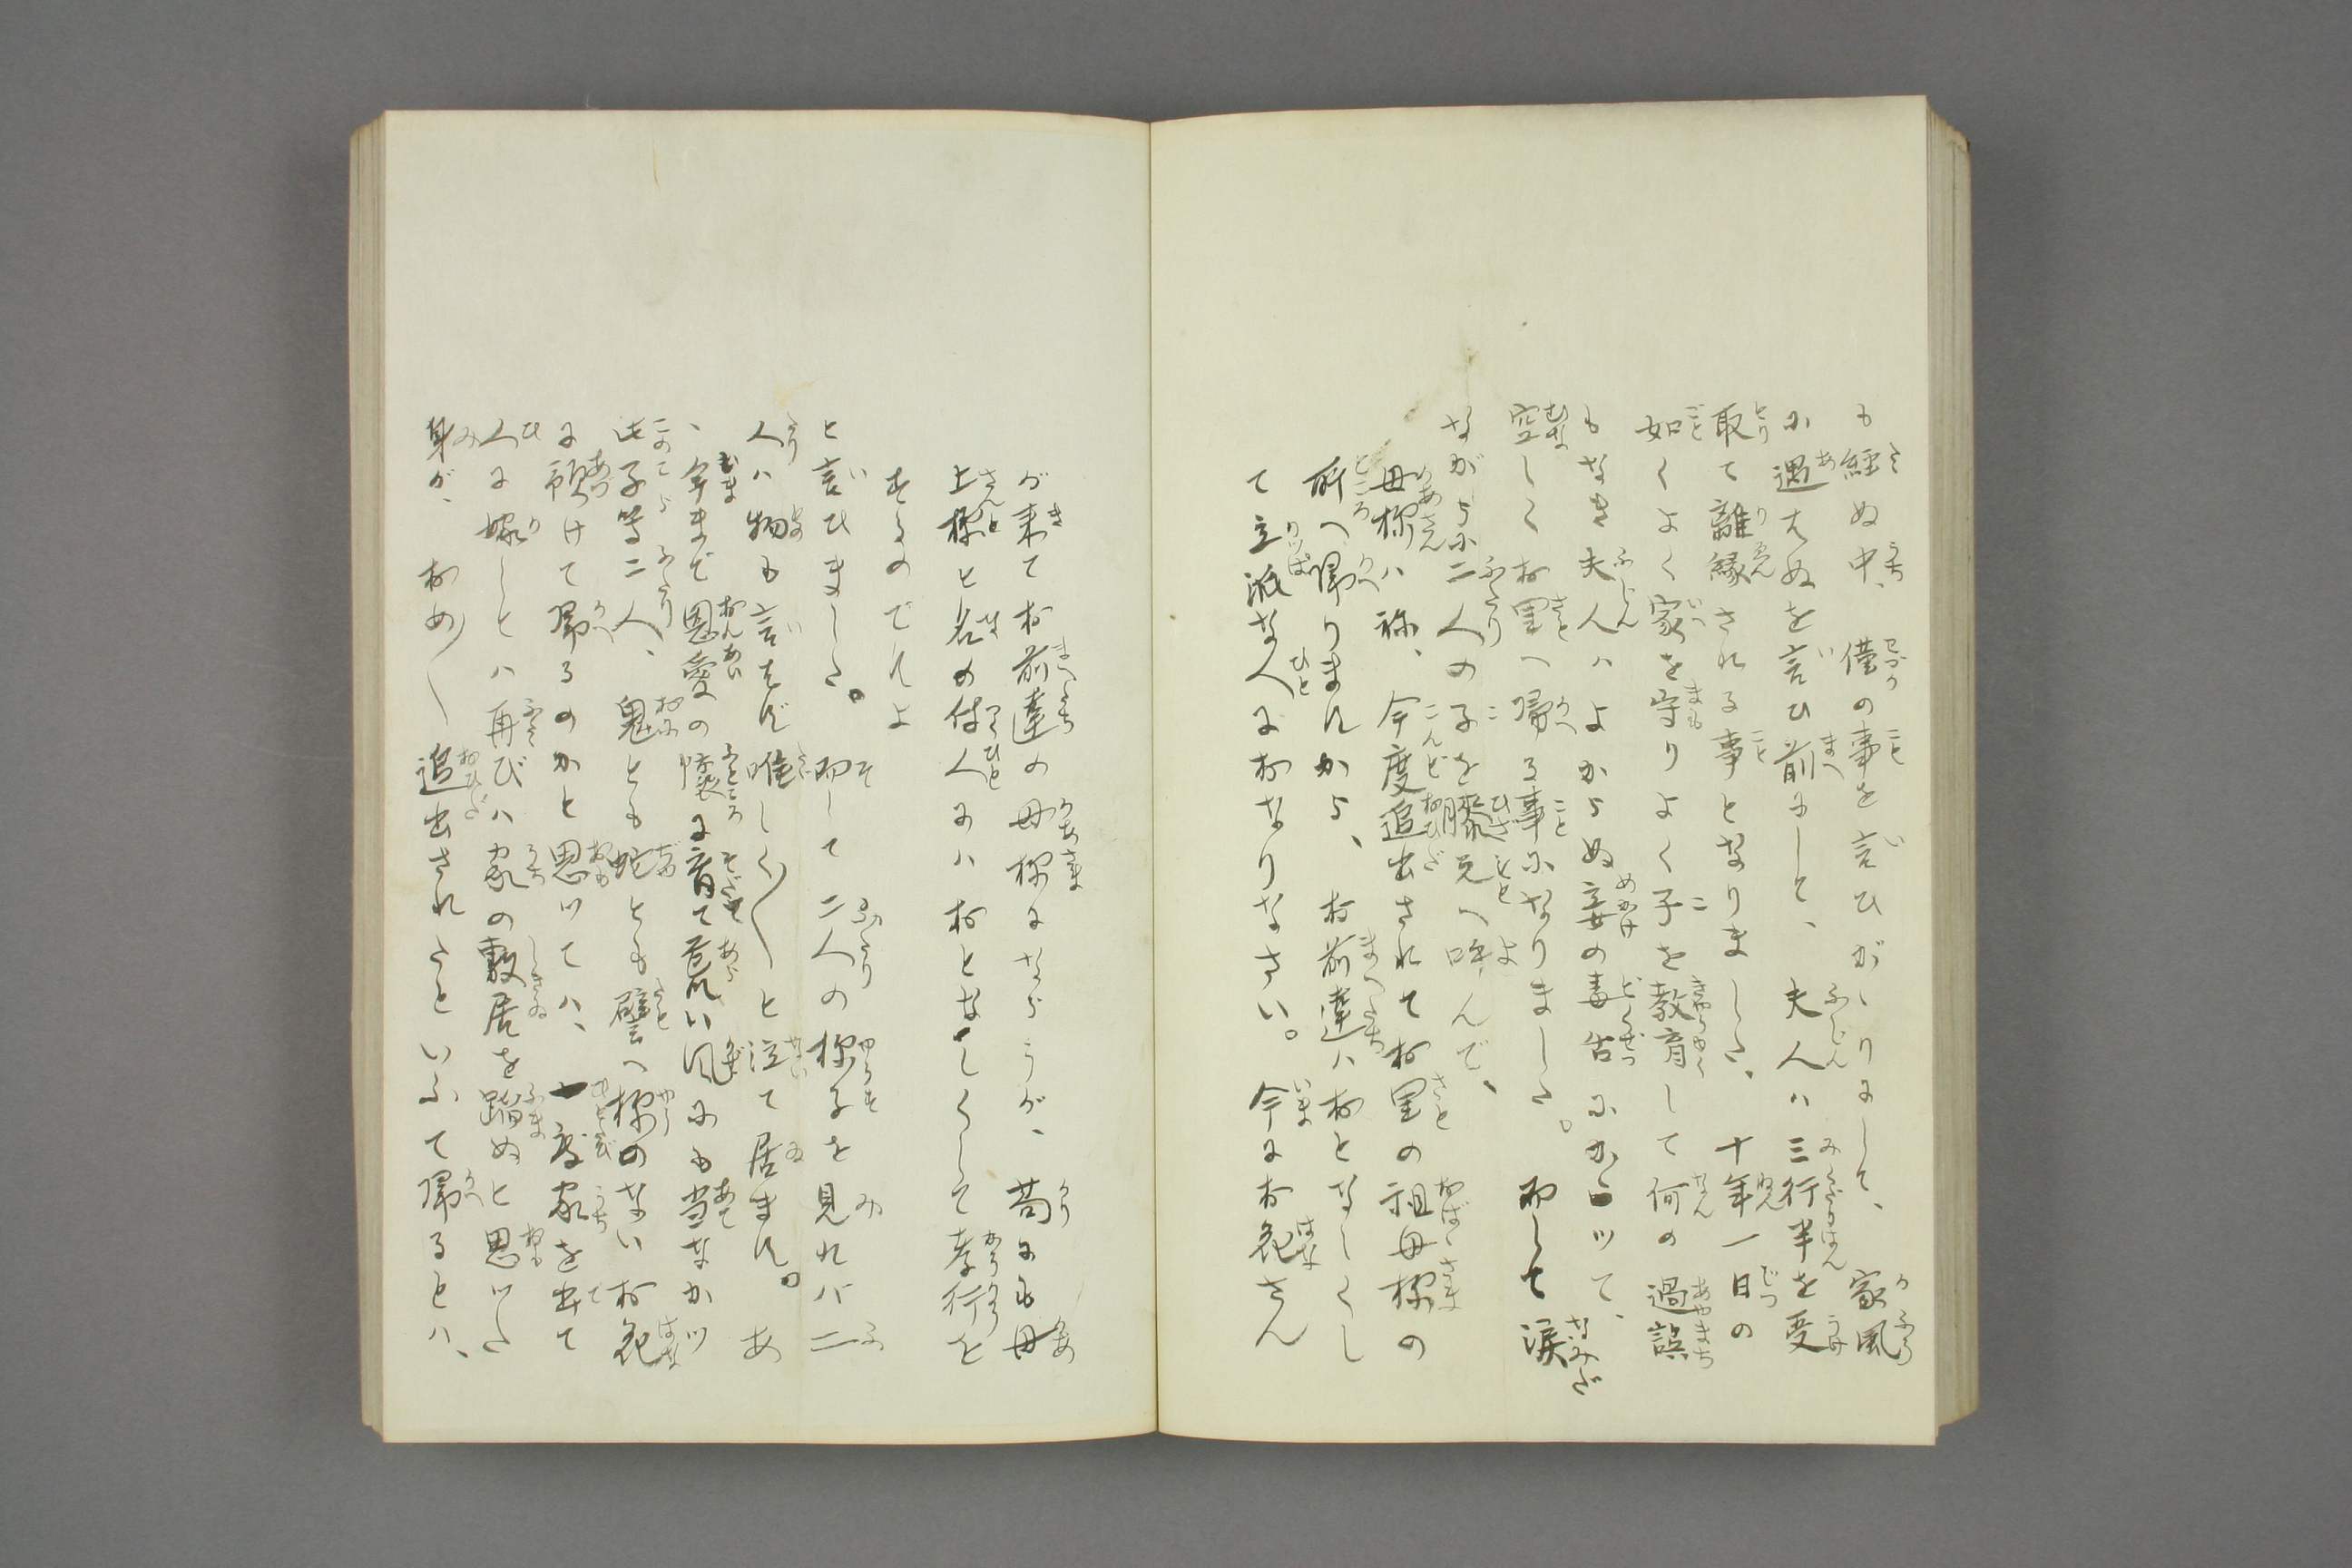 も經ぬ中、僅の事を言ひがゝりにして、家風
に遇はぬを言ひ前にして、夫人ハ三行半を受
取て離縁される事となりました、十年一日の
如くよく家を守りよく子を教育して何の過誤
もなき夫人ハよからぬ妾の毒舌にかゝツて、
空しくお里へ帰る事になりました。而して涙
ながらに二人の子を膝元へ呼んで、
母様ハ祢、今度追出されてお里の祖母様の
所へ帰りますから、お前達ハおとなしくし
て立派な人におなりなさい。今にお花さん
が来てお前達の母様にならうが、苟にも母
上様と名の付人にハおとなしくして孝行を
するのですよ
と言ひました。而して二人の様子を見れバ二
人ハ物も言はず唯しく〱と泣て居ます。あ
ゝ今まで恩愛の懐に育て荒い風にも当なかツ
此子等二人、鬼とも蛇とも譬へ様のないお花
に預けて帰るのかと思ツてハ、一度家を出て
人に嫁しとハ再びハ家の敷居を踏ぬと思ツた
身が、おめ〱追出されたといふて帰るとハ、